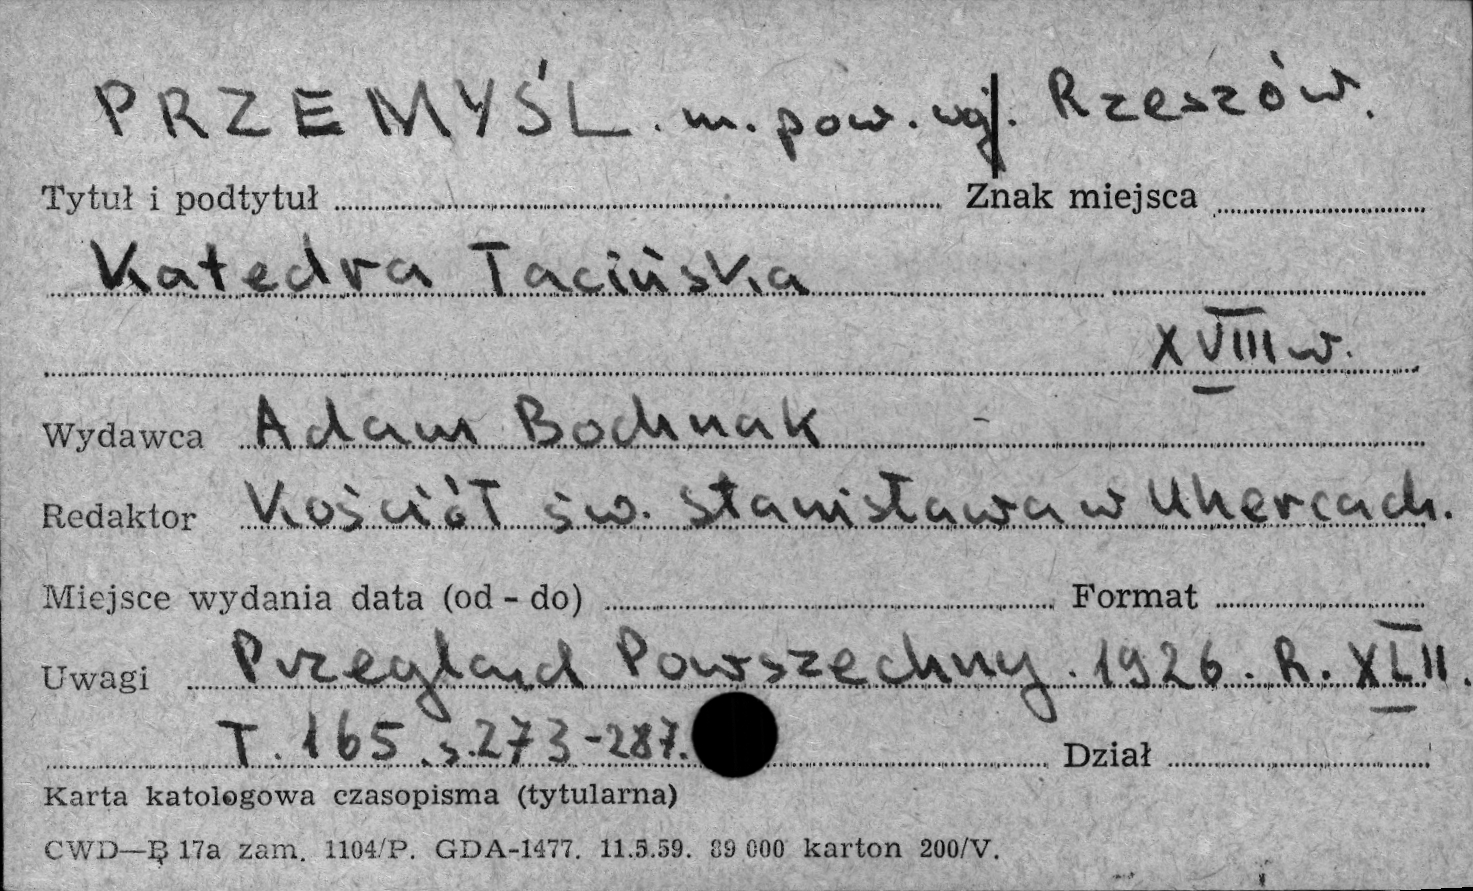 PRZEMYŚL. m. pow. woj. Rzeszów.
Tytuł i podtytuł Znak miejsca
Katedra łacińska
XVIII w.
Wydawca Adam Bochnak
Redaktor Kościół św. Stanisława w Uhercach.
Miejsce wydania data (od - do) Format
Uwagi Przegląd Powszechny. 1926. R. XLII.
T. 165 s. 273-287. Dział
Karta katologowa czasopisma (tytularna)
CWD—B 17a zam. 1104/P. GDA-1477. 11.5.59. 89 000 karton 200/V.